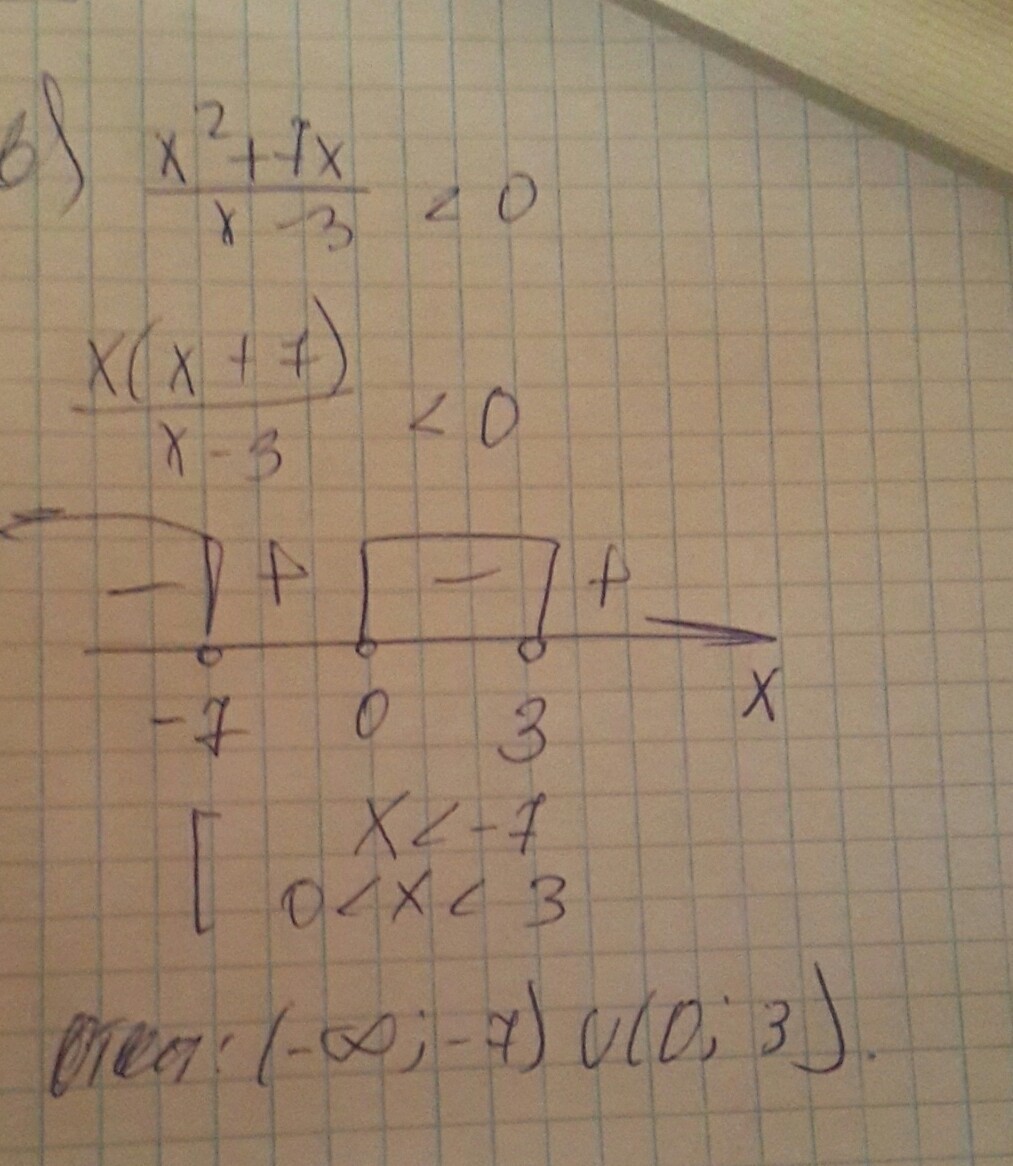 в) x²+7x / x-3 < 0
x(x+7) / x-3 < 0
- + - +
-7 0 3 x
[ x<-7
0<x<3
Ответ: (-∞;-7)∪(0;3).